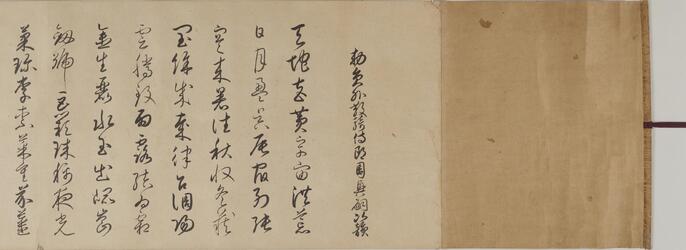 勅員外散騎侍郎周興嗣次韻
天地玄黃宇宙洪荒
日月盈昃辰宿列張
寒來暑往秋收冬藏
閏餘成歲律召調陽
雲騰致雨露結為霜
金生麗水玉出崑崗
劍號巨闕珠稱夜光
菓珍李柰菜重芥薑